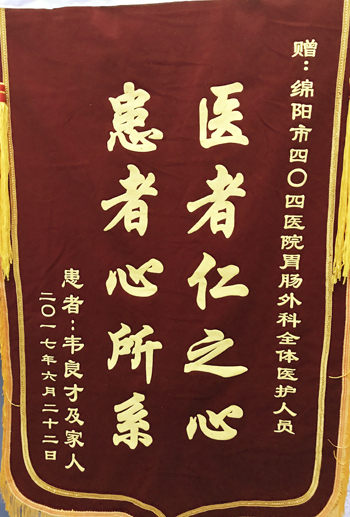 赠：绵阳市四〇四医院胃肠外科全体医护人员
医者仁之心
患者心所系
患者：韦良才及家人
二〇一七年六月二十二日